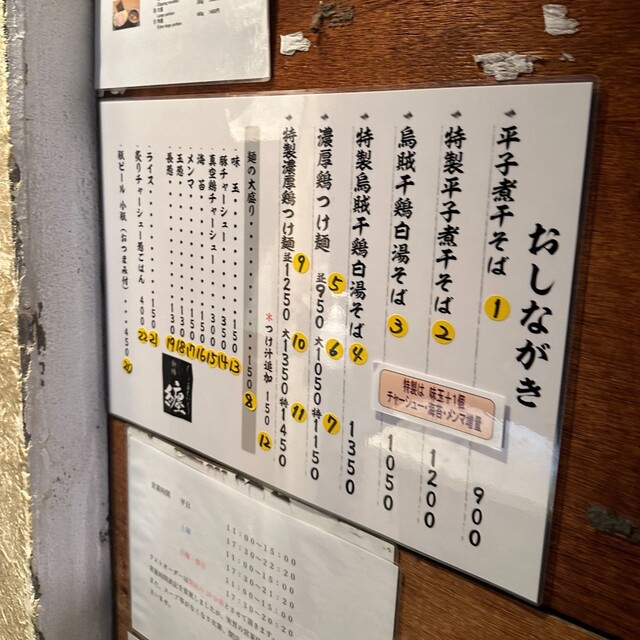 おしながき
平子煮干そば 1 900
特製平子煮干そば 2 1200
烏賊干鶏白湯そば 3 1050
特製烏賊干鶏白湯そば 4 1350
特製は 味玉+1個
チャーシュー・海苔・メンマ増量
濃厚鶏つけ麺 並950 5 大1050 6 特1150 7
特製濃厚鶏つけ麺 並1250 9 大1350 10 特1450 11
*つけ汁追加 150 12
麺の大盛り 150 8
味玉 150 13
豚チャーシュー 350 14
真空鶏チャーシュー 300 15
海苔 150 16
メンマ 150 17
玉葱 130 18
長葱 130 19
ライス 150 21
炙りチャーシュー葱ごはん 400 22
瓶ビール 小瓶(おつまみ付) 450 20
営業時間 平日
11:00~15:00
17:30~22:20
11:00~15:00
17:30~21:20
11:00~15:00
17:30~20:20